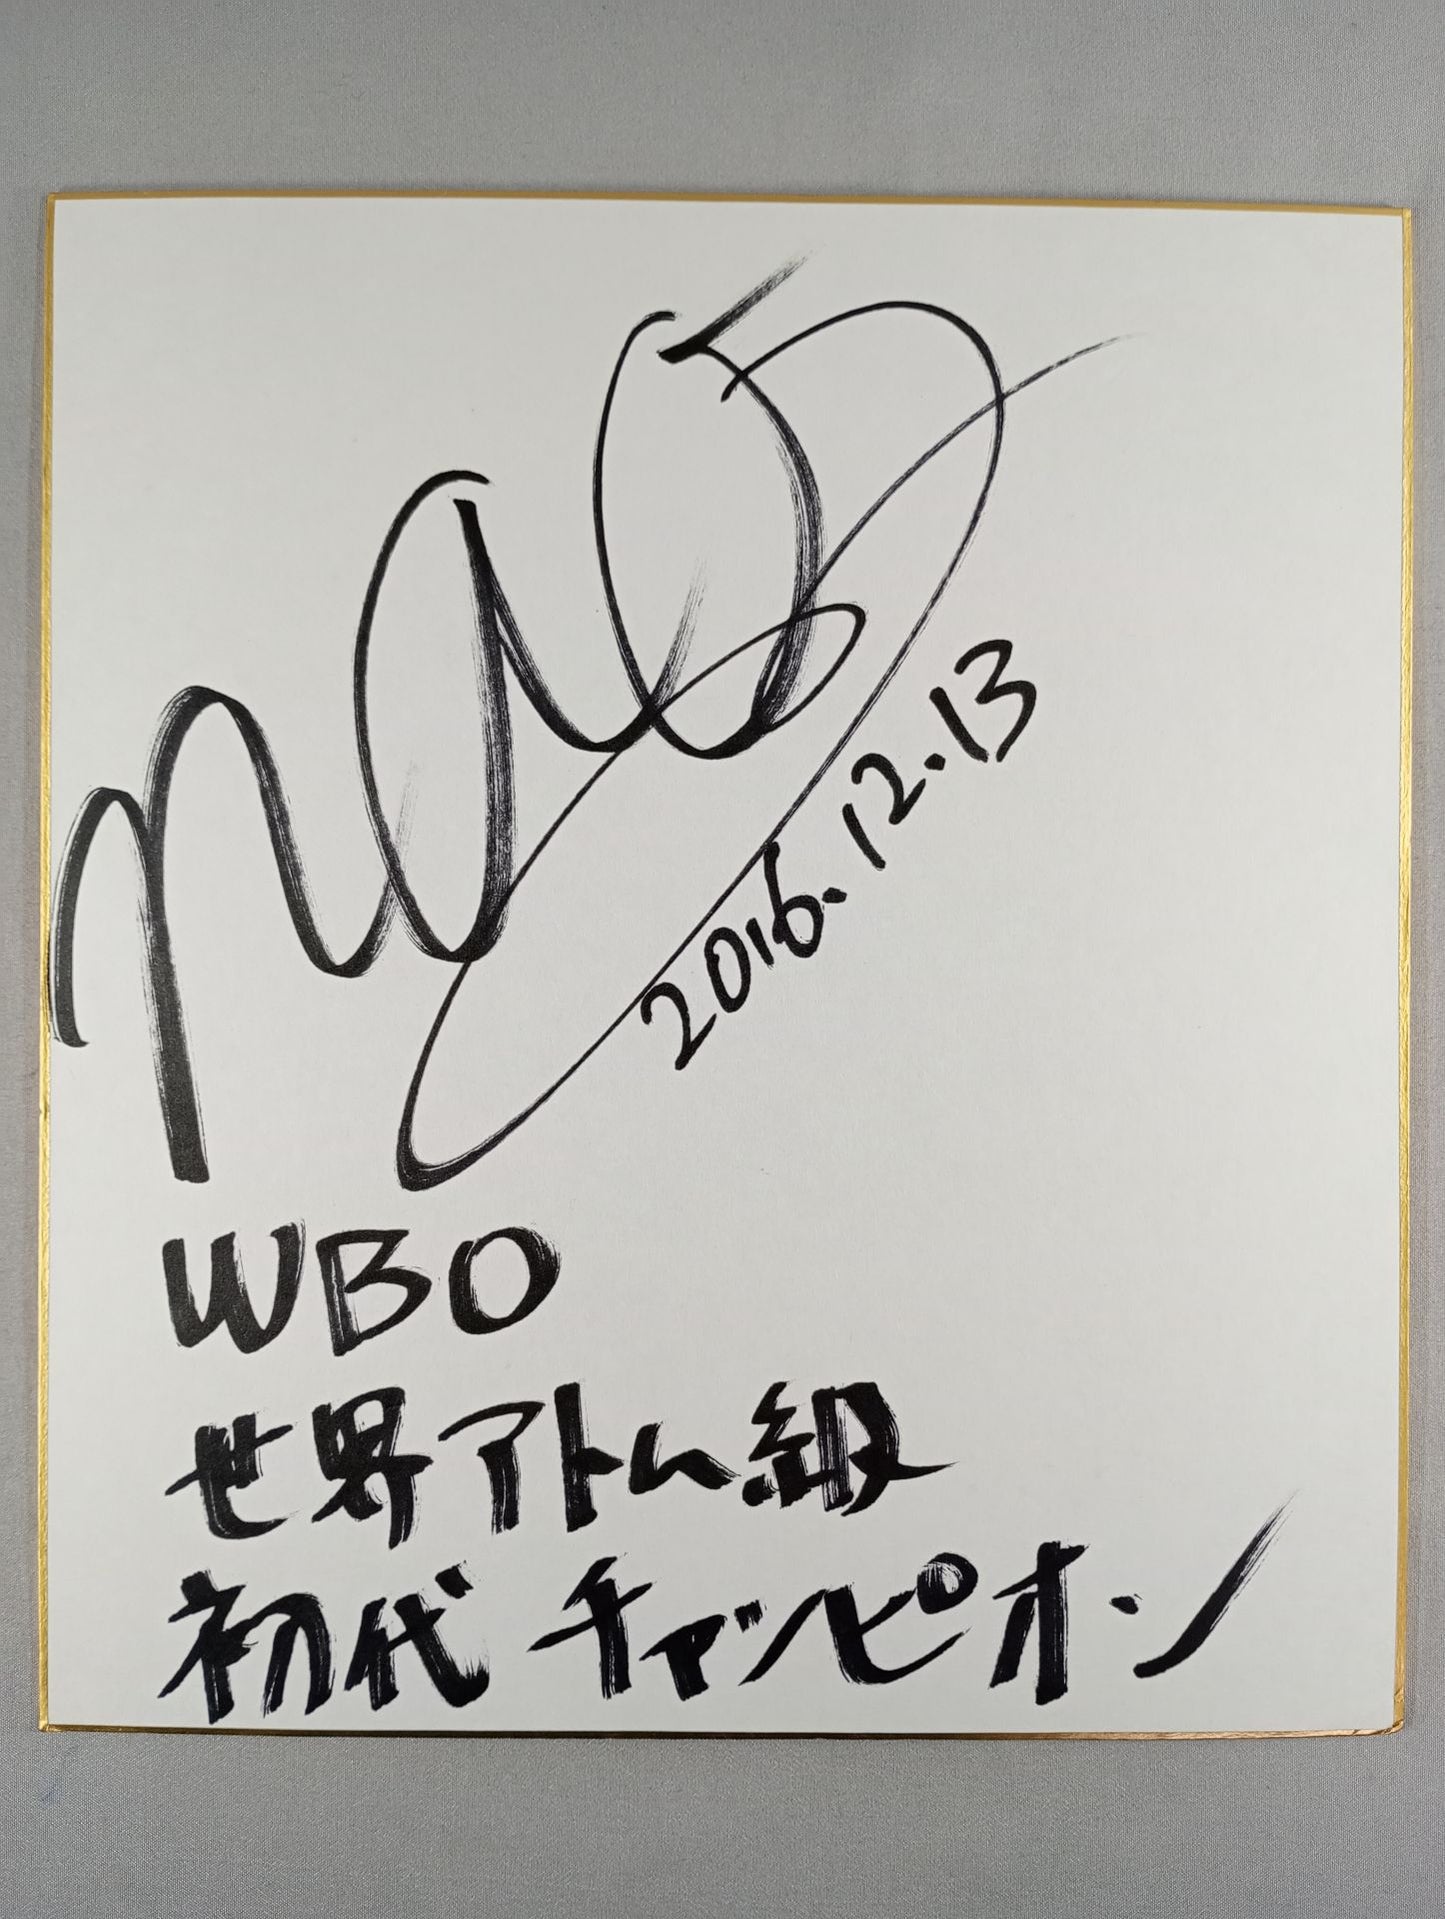 nao
2016.12.13
WBO
世界アトム級
初代チャンピオン